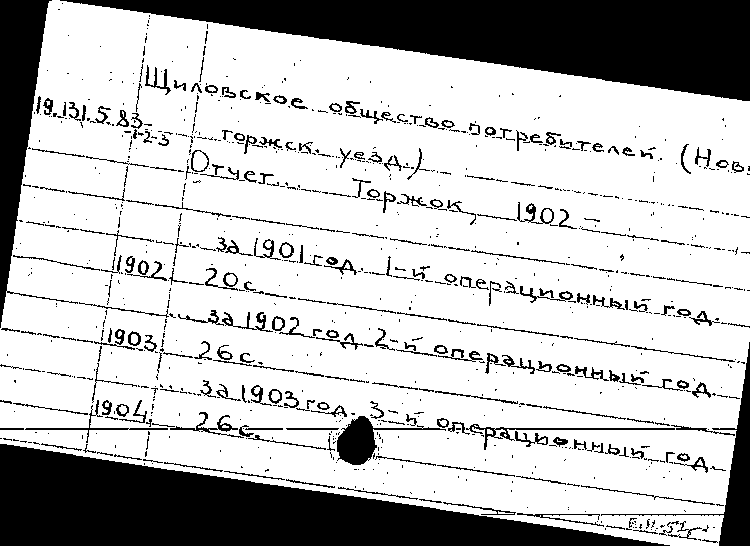 Щиловское общество потребителей. (Нов
19.131.5.83
-1-2-3
торжск. уезд.)
Отчет... Торжок, 1902 –
... за 1901 год. 1-й операционный год.
1902. 20 с.
... за 1902 год 2-й операционный год.
1903. 26 с.
... за 1903 год. 3-й операционный год.
1904. 26 с.